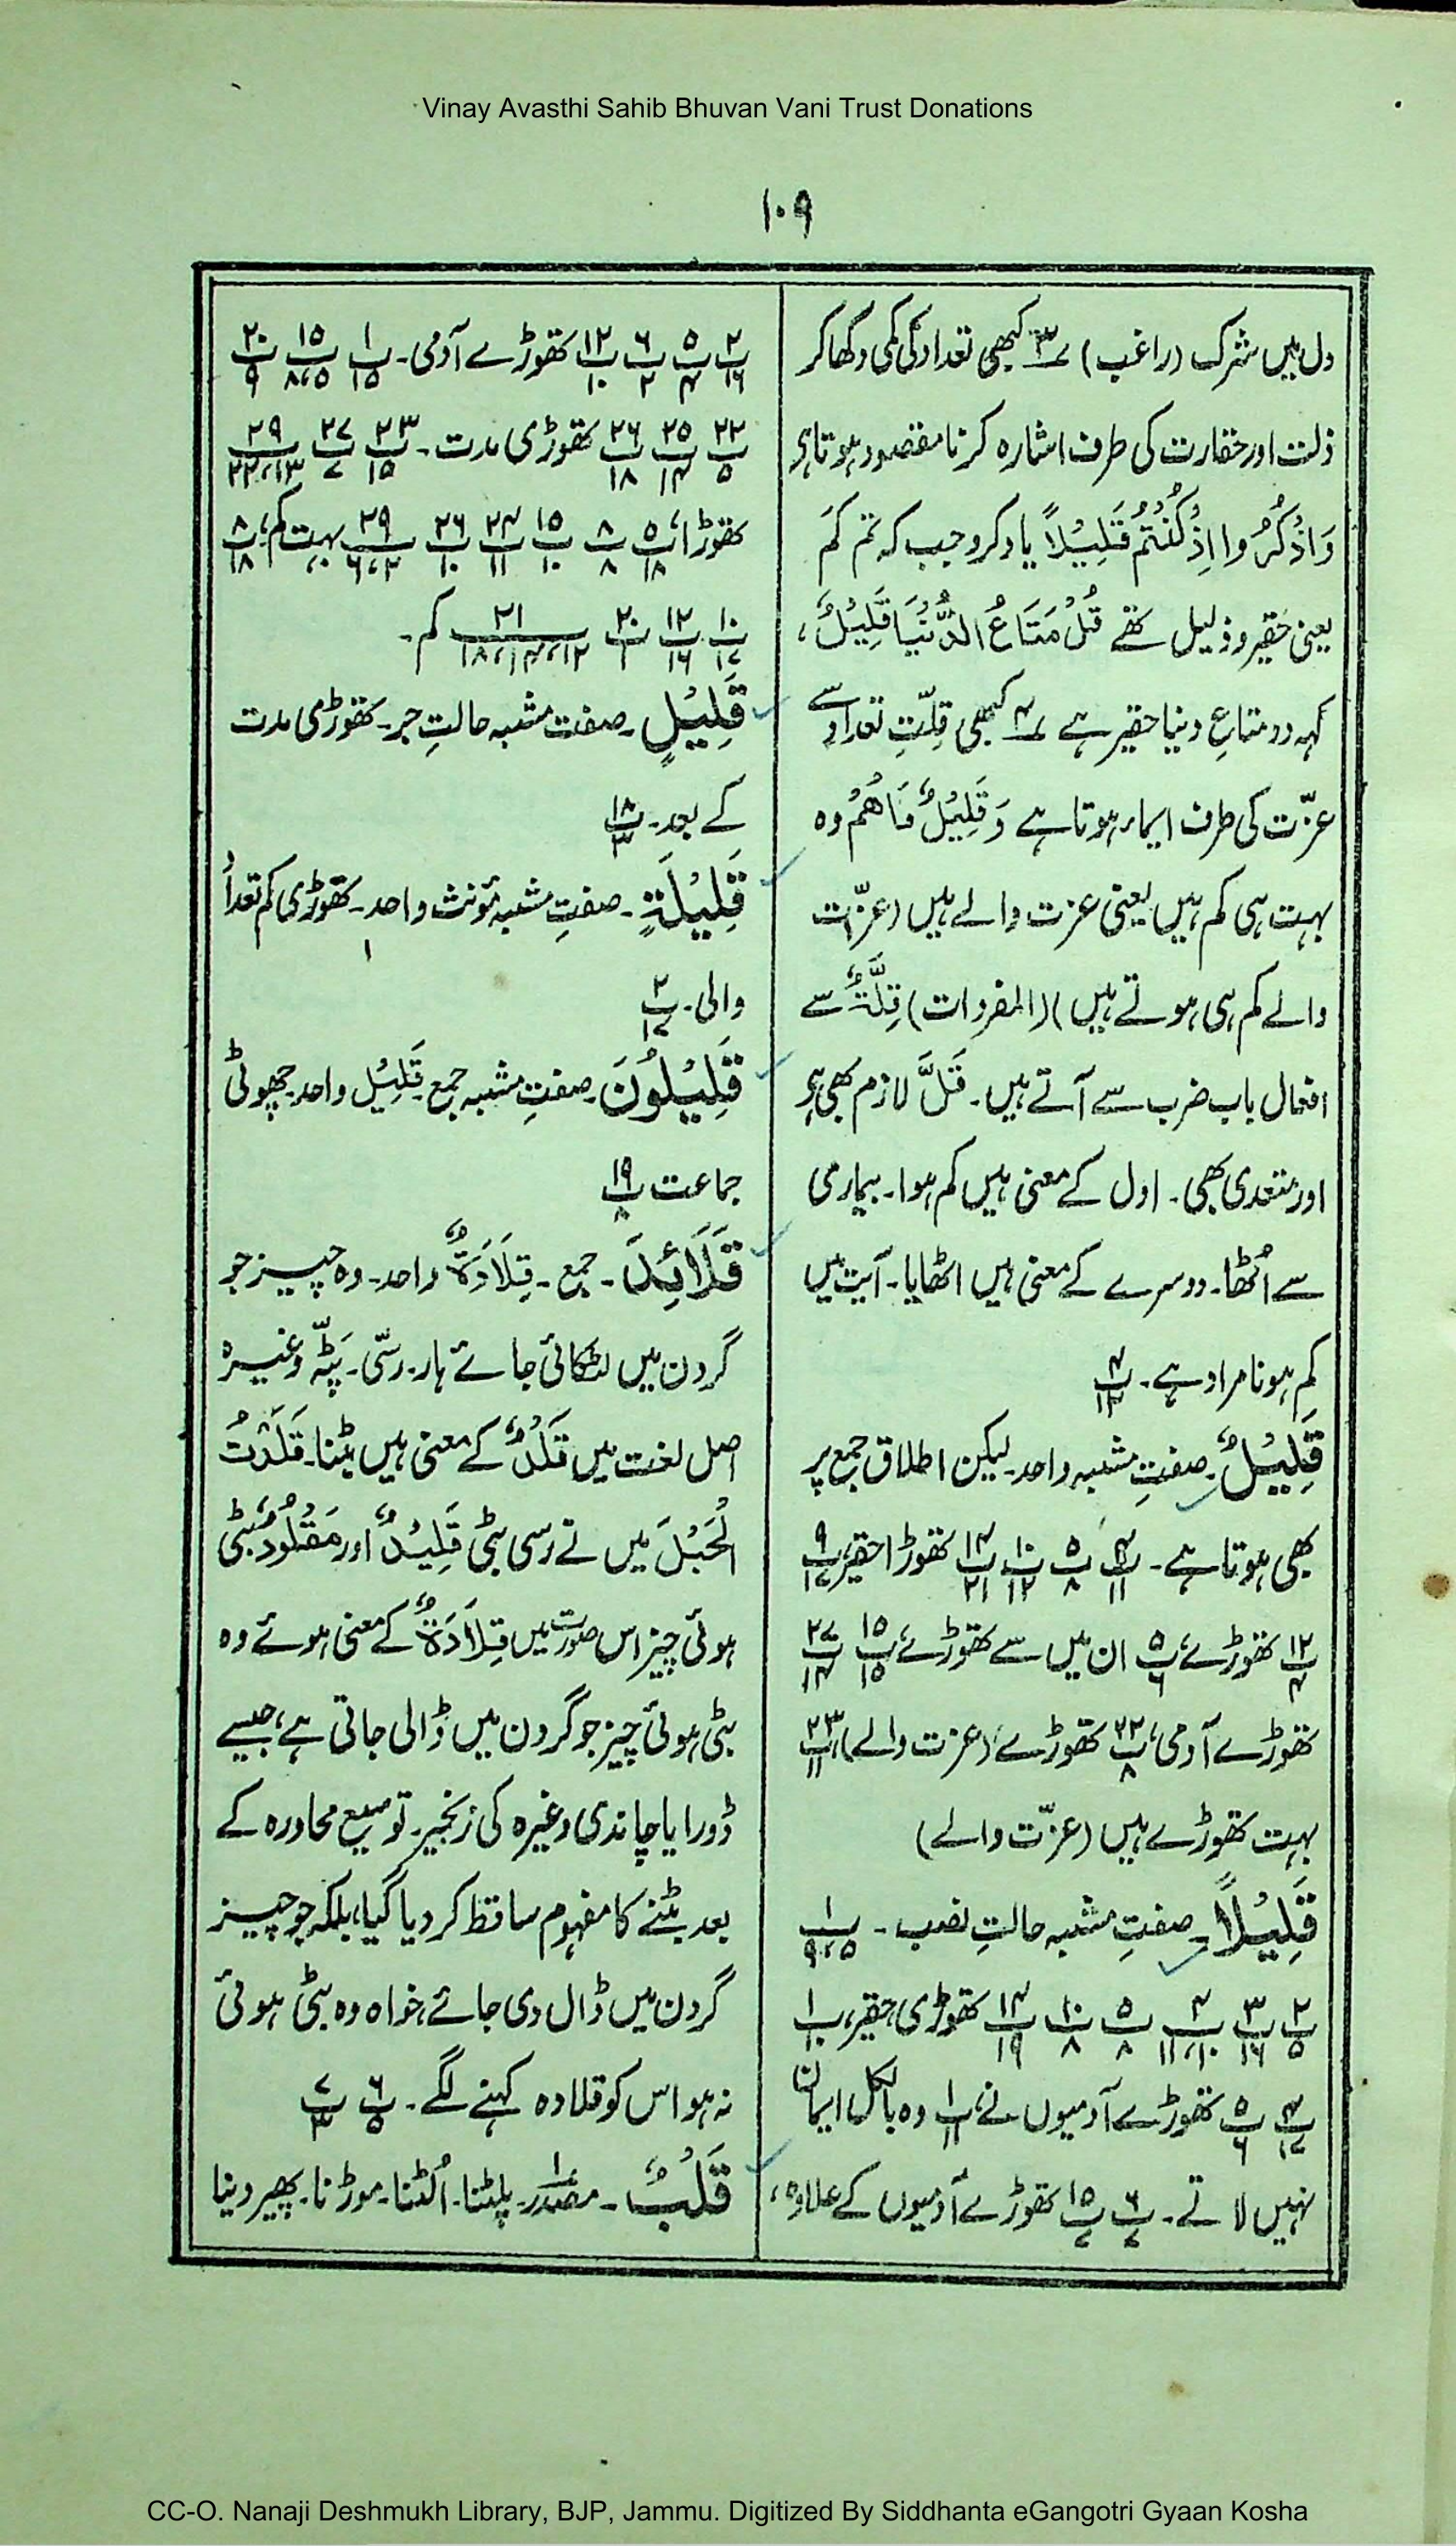 Vinay Avasthi Sahib Bhuvan Vani Trust Donations
۱۰۹
دل میں شرک (راغب) ؎۳ کبھی تعداد کی کمی دکھا کر
ذلت اور حقارت کی طرف اشارہ کرنا مقصود ہوتا ہو
وَاذْكُرُوا اِذْ كُنْتُمْ قَلِيْلًا یاد کرو جب کہ تم کم
یعنی حقیر و ذلیل تھے قُلْ مَتَاعُ الدُّنْيَا قَلِيْلٌ،
کہہ دو متاعِ دنیا حقیر ہے ؎۴ کبھی قِلّتِ تعداد سے
عزّت کی طرف ایماء ہوتا ہے وَقَلِيْلٌ مَا هُمْ وہ
بہت ہی کم ہیں یعنی عزت والے ہیں (عزّت
والے کم ہی ہوتے ہیں) (المفردات) قِلَّةٌ سے
افعال باب ضرب سے آتے ہیں۔ قَلَّ لازم بھی ہو
اور متعدی بھی۔ اول کے معنی ہیں کم ہوا۔ بیماری
سے اُٹھا۔ دوسرے کے معنی ہیں اٹھایا۔ آیت میں
کم ہونا مراد ہے۔ پ۴/۱۲
قَلِيْلٌ۔ صفتِ مشبہ واحد۔ لیکن اطلاق جمع پر
بھی ہوتا ہے۔ پ۴/۱۱ پ۵/۸ پ۱۰/۱۲ پ۱۴/۲۱ تھوڑا حقیر، پ۹/۱۷
پ۱۲/۴ تھوڑے، پ۵/۶ ان میں سے تھوڑے، پ۱۵/۱۵ پ۲۷/۱۴
تھوڑے آدمی، پ۲۲/۸ تھوڑے (عزت والے)، پ۲۳/۱۱
بہت تھوڑے ہیں (عزّت والے)
قَلِيْلًا۔ صفتِ مشبہ حالتِ نصب۔ پ۱/۹،۵
پ۲/۵ پ۳/۱۶ پ۴/۱۱،۱۰ پ۵/۸ پ۱۰/۸ پ۱۴/۱۹ تھوڑی حقیر، پ۱/۱۰
پ۴/۱۷ پ۵/۶ تھوڑے آدمیوں نے، پ۱/۱۱ وہ بالکل ایمان
نہیں لاتے۔ پ۶/۷ پ۱۵/۷ تھوڑے آدمیوں کے علاوہ،
پ۲/۱۶ پ۵/۴ پ۶/۲ پ۱۲/۱۰ تھوڑے آدمی۔ پ۱/۱۵ پ۱۵/۸،۵ پ۲۰/۹
پ۲۲/۵ پ۲۵/۱۴ پ۲۶/۱۸ تھوڑی مدت۔ پ۲۳/۱۵ پ۲۷/۷ پ۲۹/۲۲،۱۳
تھوڑا، پ۵/۱۸ پ۸/۸ پ۱۵/۱۰ پ۲۴/۱۱ پ۲۶/۱۰ پ۲۹/۶،۲ بہت کم، پ۸/۱۸
پ۱۰/۱۲ پ۱۲/۱۶ پ۲۰/۱ پ۲۱/۱۸،۱۴،۱۲ کم۔
قَلِيْلٍ۔ صفت مشبہ حالتِ جر۔ تھوڑی مدت
کے بعد۔ پ۱۸/۳
قَلِيْلَةٍ۔ صفتِ مشبہ مؤنث واحد۔ تھوڑی کم تعداد
والی۔ پ۲/۱۷
قَلِيْلُوْنَ۔ صفتِ مشبہ جمع۔ قَلِيْل واحد۔ چھوٹی
جماعت پ۱۹/۸
قَلَائِدَ۔ جمع۔ قِلَادَةٌ واحد۔ وہ چیز جو
گردن میں لٹکائی جائے ہار۔ رسّی۔ پَٹّہ وغیرہ
اصل لغت میں قَلْدٌ کے معنی ہیں بٹنا۔ قَلَدْتُ
الْحَبْلَ میں نے رسی بٹی قَلِيْدٌ اور مَقْلُوْدٌ بٹی
ہوئی چیز اس صورت میں قِلَادَةٌ کے معنی ہوئے وہ
بٹی ہوئی چیز جو گردن میں ڈالی جاتی ہے، جیسے
ڈورا یا چاندی وغیرہ کی زنجیر۔ توسیع محاورہ کے
بعد بٹنے کا مفہوم ساقط کر دیا گیا، بلکہ جو چیز
گردن میں ڈال دی جائے خواہ وہ بٹی ہوئی
نہ ہو اس کو قلادہ کہنے لگے۔ پ۶/۵ پ۷/۳
قَلْبٌ۔ مصدر۔ پلٹنا۔ اُلٹنا۔ موڑنا۔ پھیر دینا
CC-O. Nanaji Deshmukh Library, BJP, Jammu. Digitized By Siddhanta eGangotri Gyaan Kosha